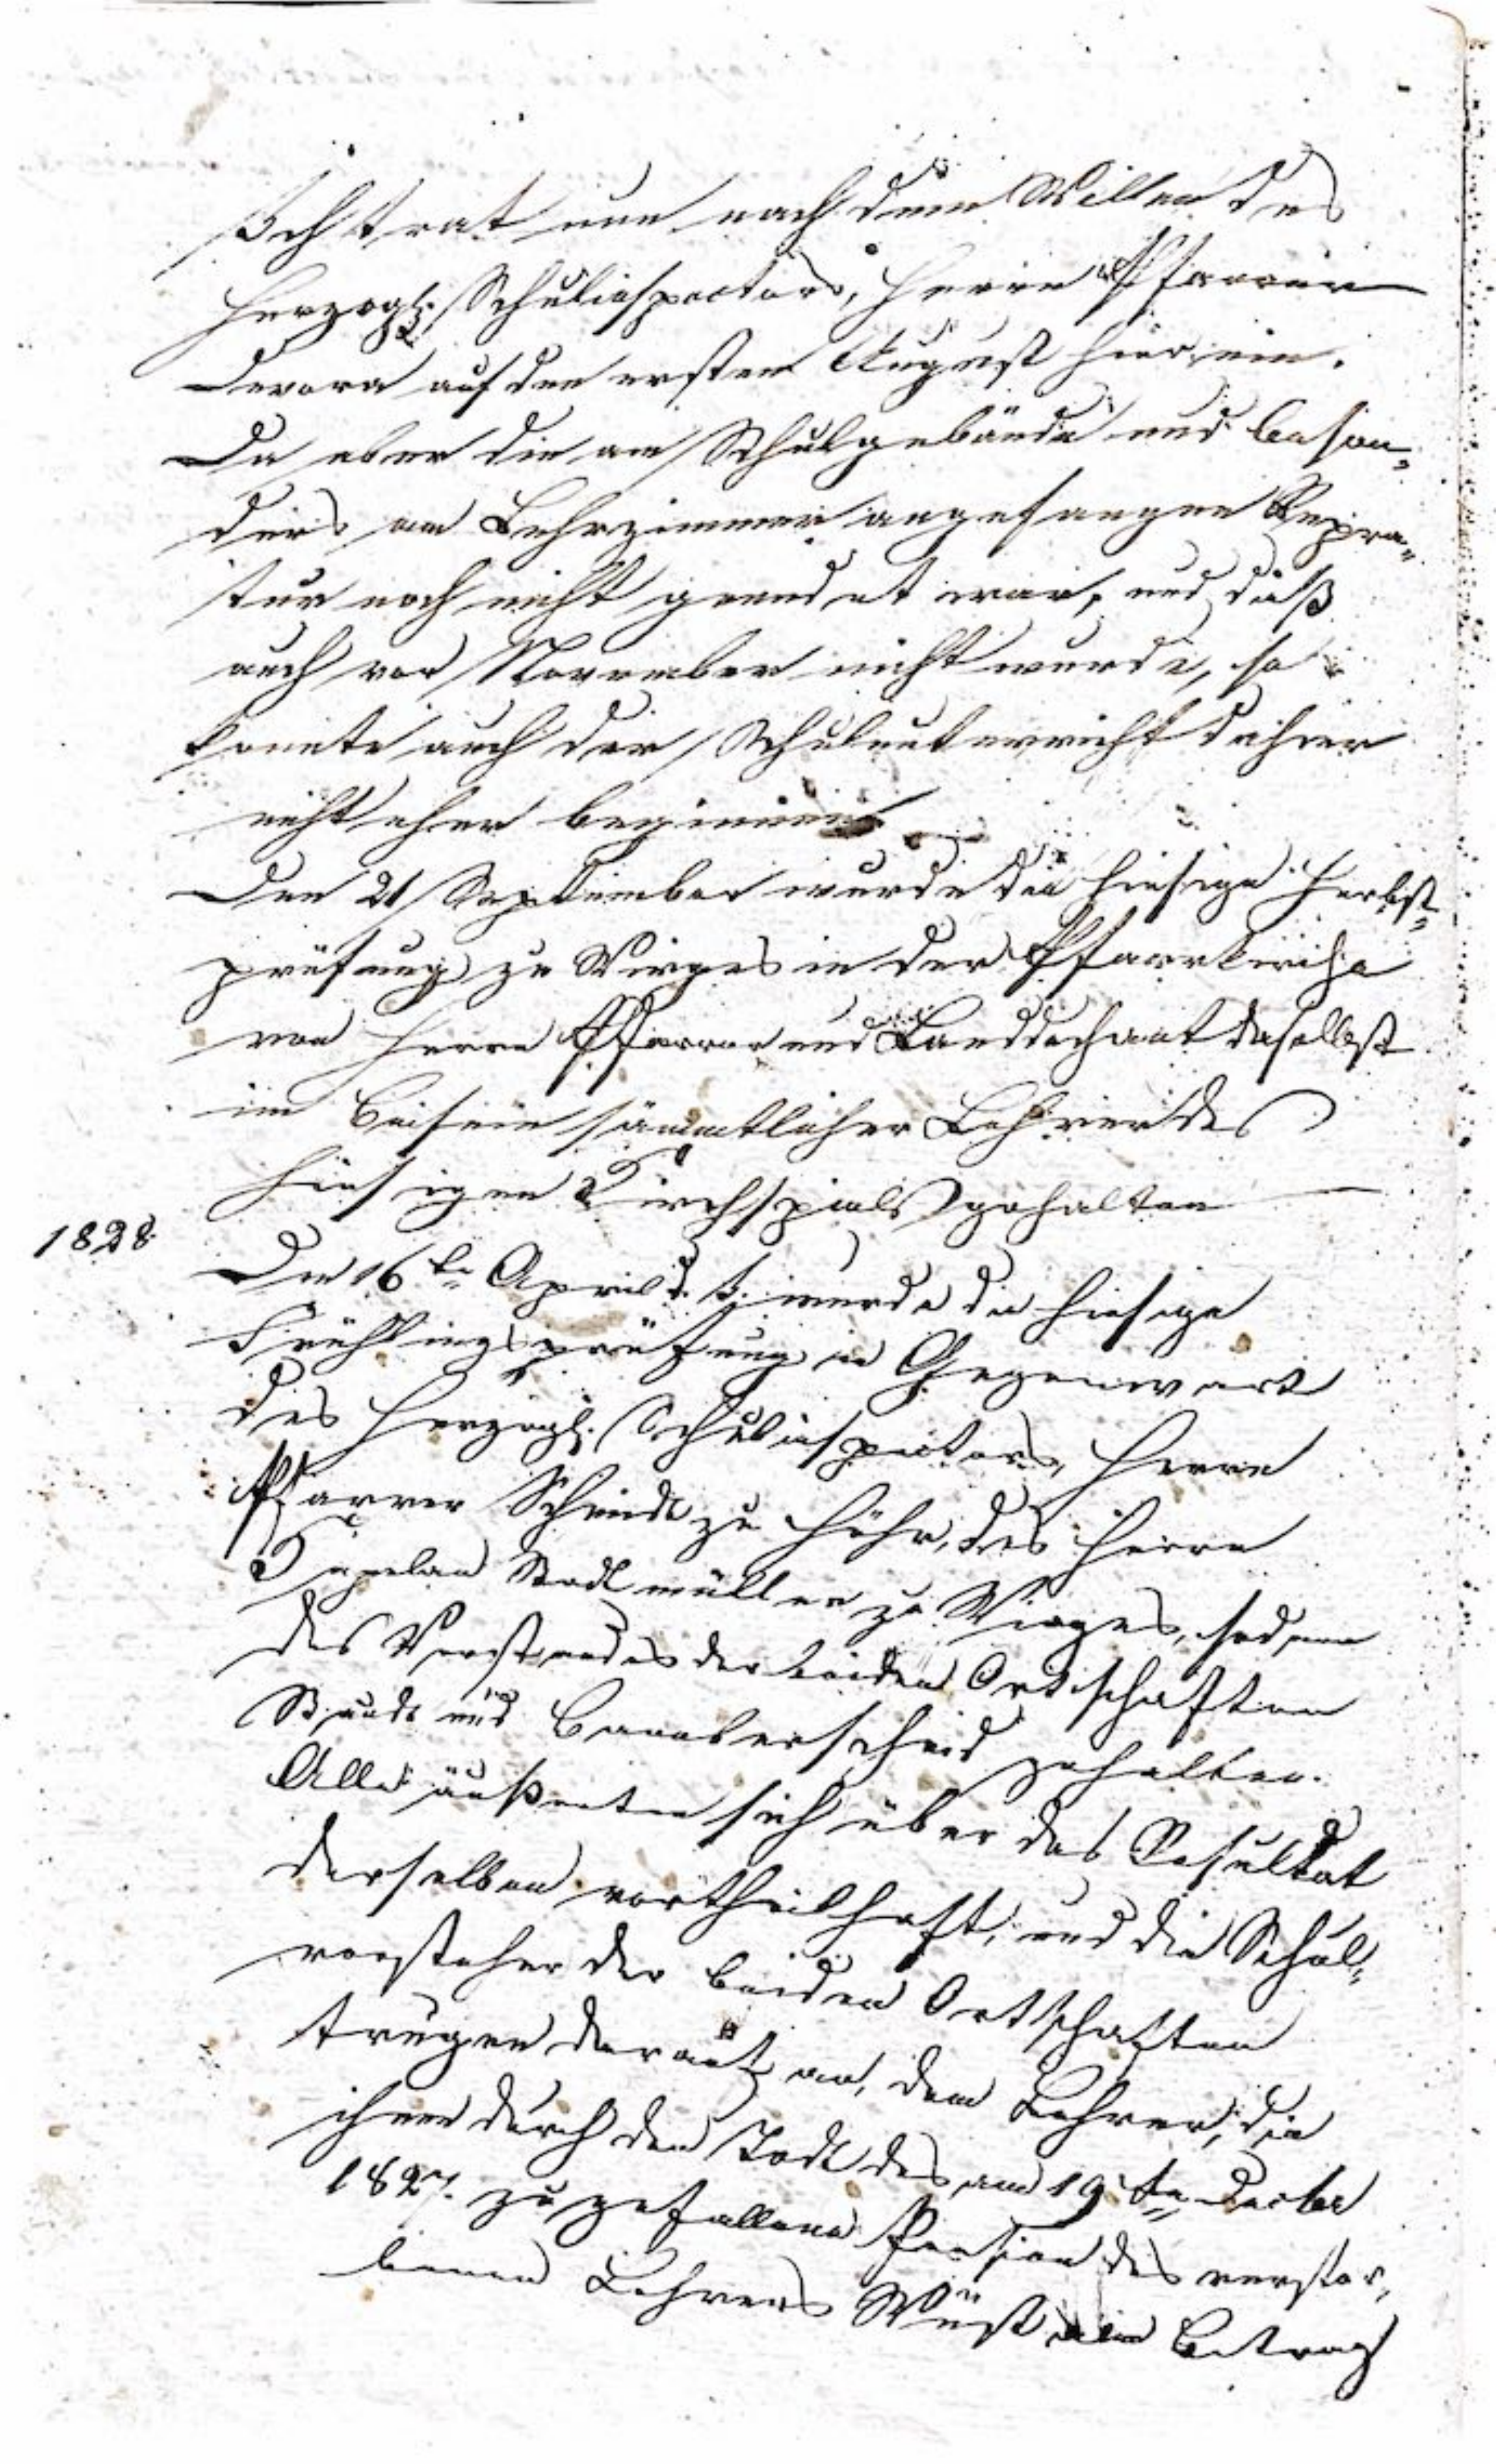 Ich trat nun nach dem Willen des
Herzogl. Schulinspectors, Herrn Pfarrer
Devora auf den ersten August hier ein.
Da aber die am Schulgebäude und beson„
ders am Lehrzimmer angefangene Repra„
tur noch nicht geendet war, und dieß
auch vor November nicht wurde, so
konnte auch der Schulunterricht dahier
nicht eher beginnen
Den 21 September wurde die hiesige Herbst„
prüfung zu Wirges in der Pfarrkirche
von Herrn Pfarrer und Landdechant daselbst
im Beisein sämmtlicher Lehrer des
hiesigen Kirchspiels gehalten
1828
Den 16ten April d. J. wurde die hiesige
Frühlingsprüfung in Gegenwart
des Herzogl. Schulinspectors, Herrn
Pfarrer Schmidt zu Höhr, des Herrn
Kapelan Stadtmüller zu Wirges, sodann
des Vorstandes der beiden Ortschaften
Staudt und Bannberscheid gehalten.
Alle äußerten sich über das Resultat
derselben vortheilhaft, und die Schul„
vorsteher der beiden Ortschaften
trugen darauf an, dem Lehrer, die
ihnen durch den Todt des am 19ten Decber
1827. zugefallene Pension des verstor„
benen Lehrers Wüst im Betrag